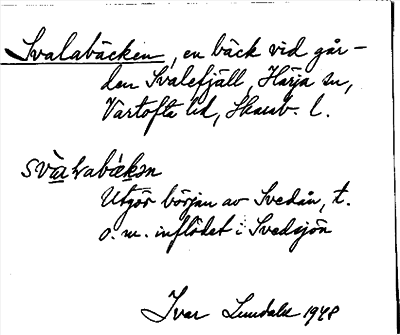 Svalabäcken, en bäck vid går-
den Svalefjäll, Härja sn,
Vartofta hd, Skarab. l.
svàlabákən
Utgör början av Svedån, t.
o. m. inflödet i Svedsjön
Ivar Lundahl 1948